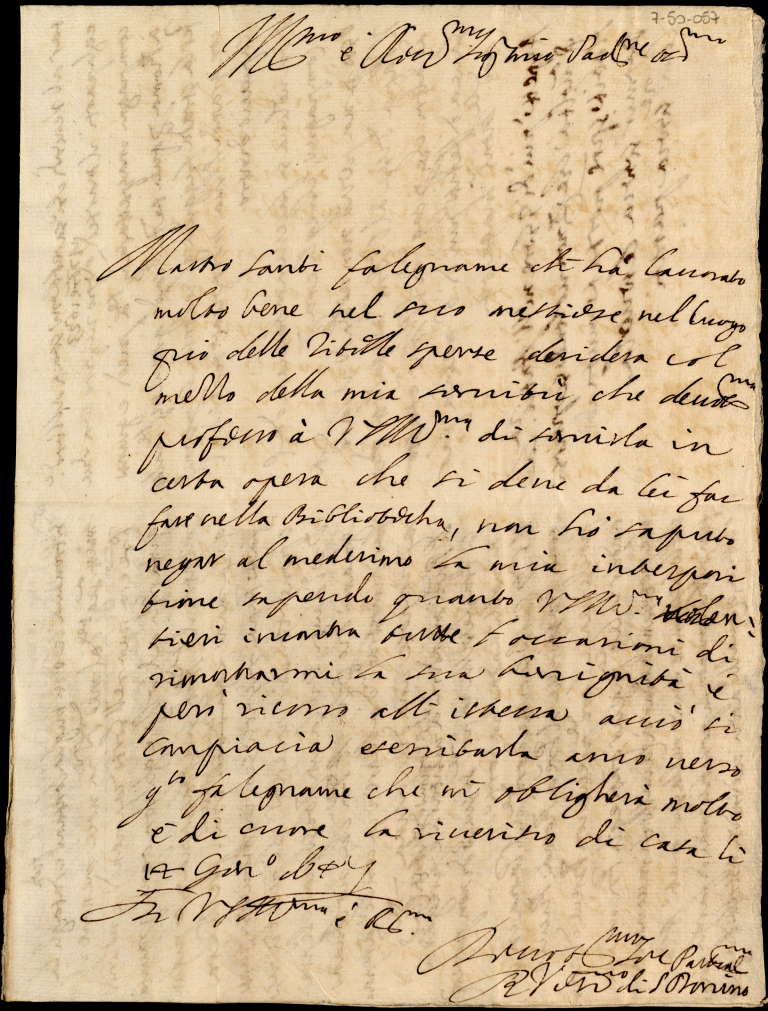 7-50-057
Ill.mo e Rev.mo Sig. mio Pad.ne
Mastro Santi falegname che hà lavorato
molto bene nel suo mestiere nel luogo
pio delle Zitelle sperse desidera col
mezzo della mia servitù che
professo à VSIll.ma di servirla in
certa opera che si deve da lei far
fare nella Bibliotecha, non hò saputo
negar al medesimo la mia interposi
tione sapendo quanto VSIll.ma volen:
tieri incontra tutte l'occasioni di
rimostrarmi la sua benignità e
però ricorro all' istessa acciò si
compiacia esercitarla anco verso
q.to falegname che mi obligherà molto
e di cuore la riverisco di casa li
Gen.o
Di VSIll.ma e R.ma